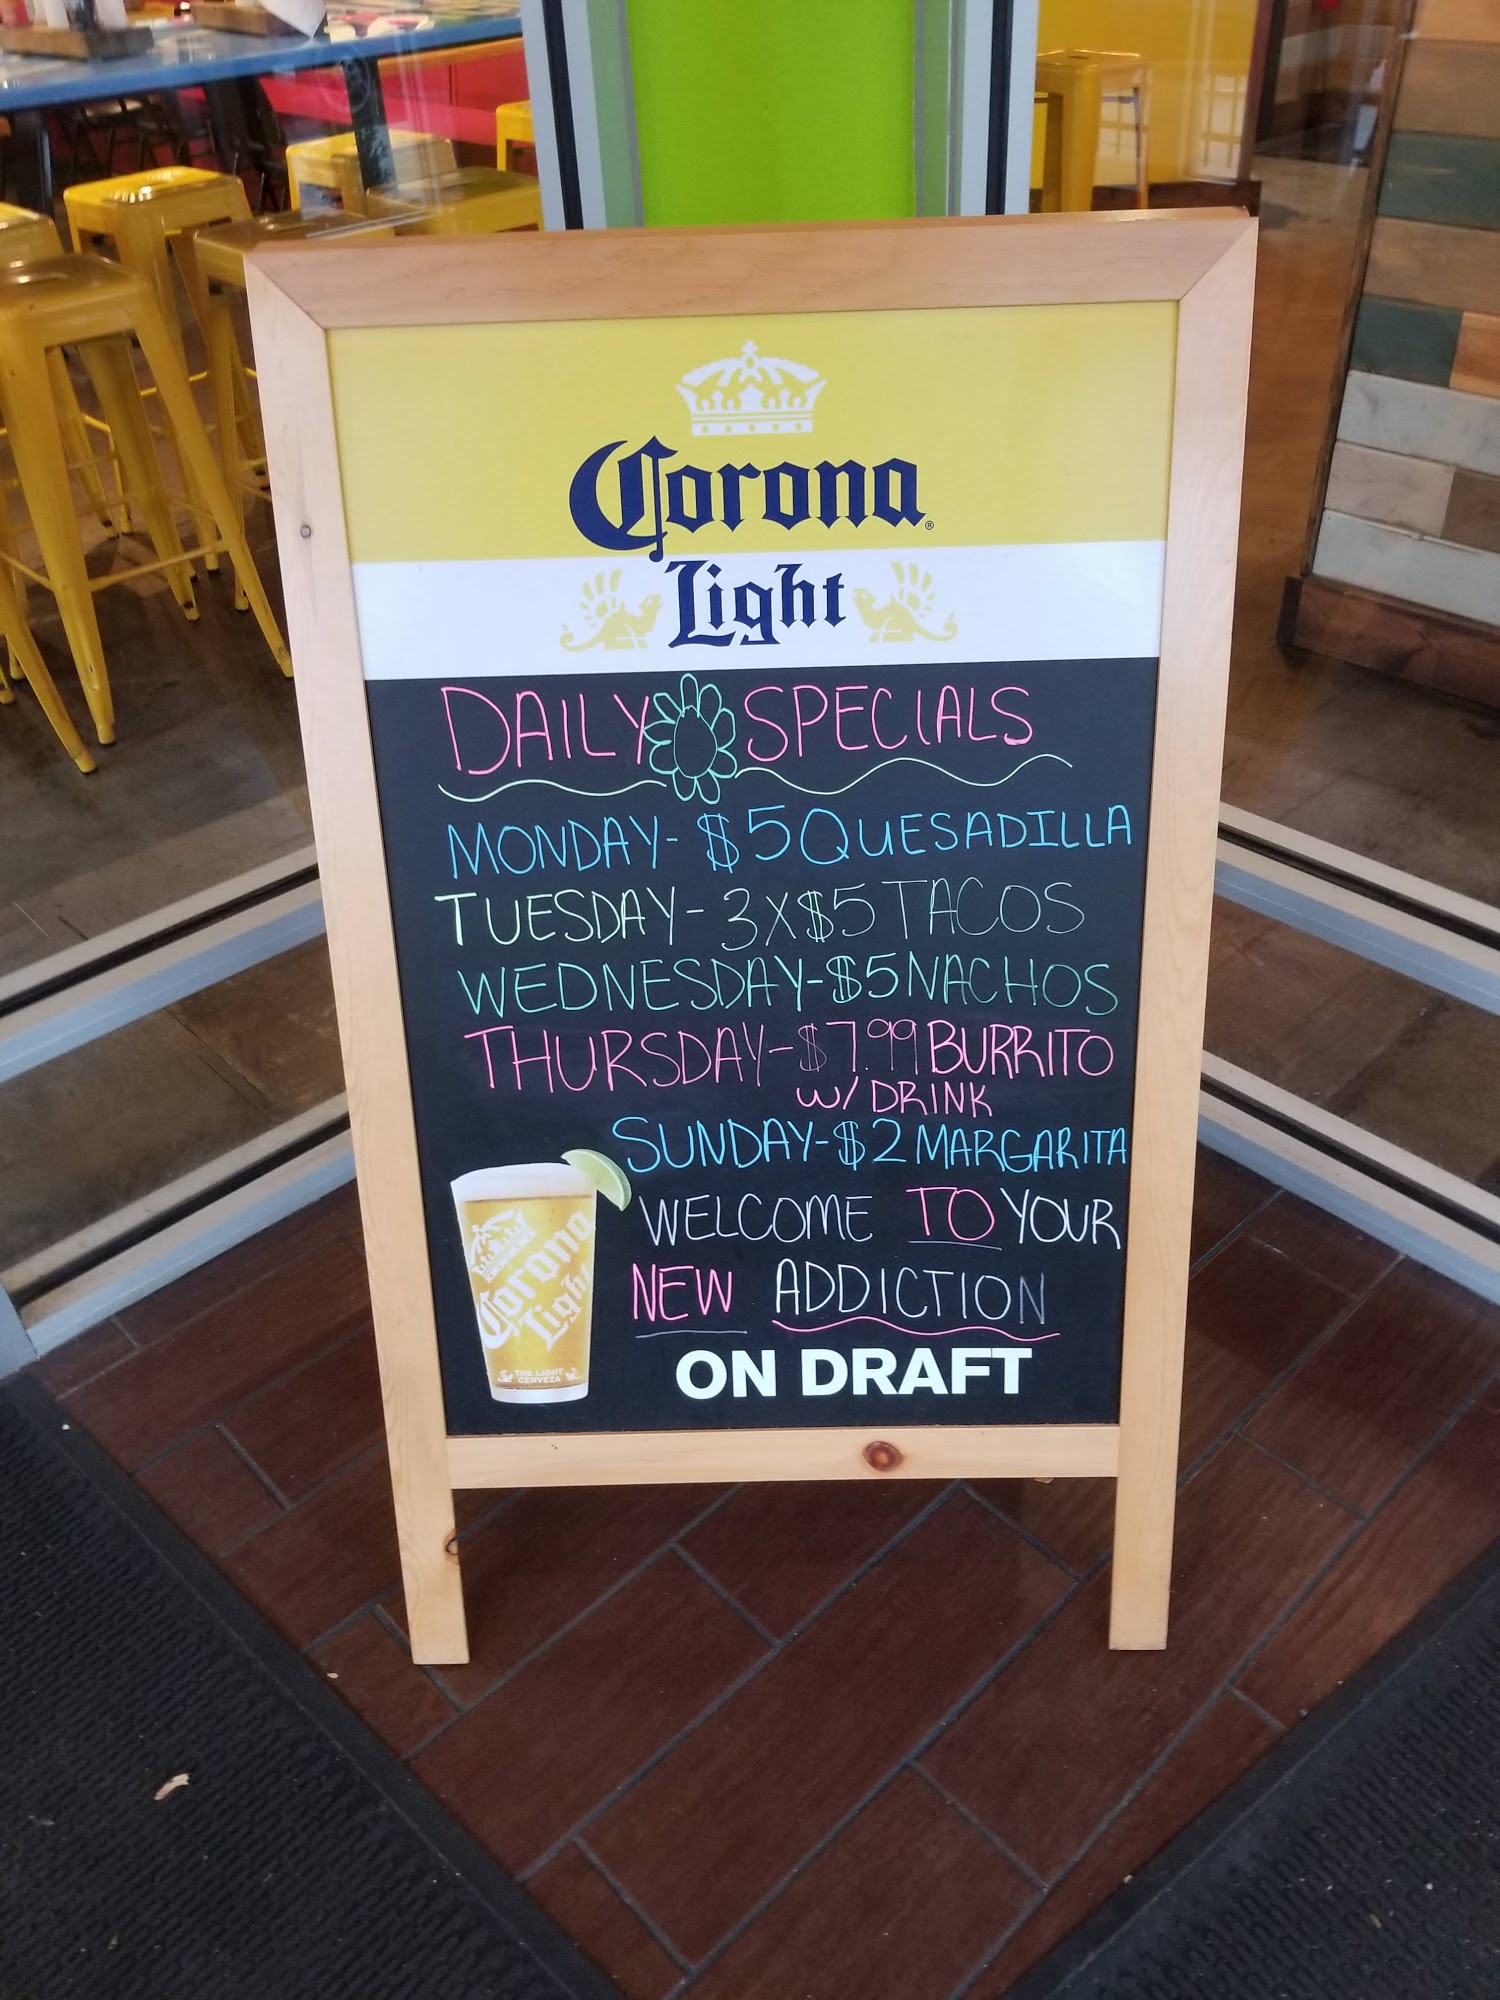 Corona®
Light
DAILY SPECIALS
MONDAY- $5 QUESADILLA
TUESDAY- 3X$5 TACOS
WEDNESDAY-$5 NACHOS
THURSDAY-$7.99 BURRITO
W/ DRINK
SUNDAY-$2 MARGARITA
WELCOME TO YOUR
NEW ADDICTION
ON DRAFT
Corona
Light
THE LIGHT
CERVEZA